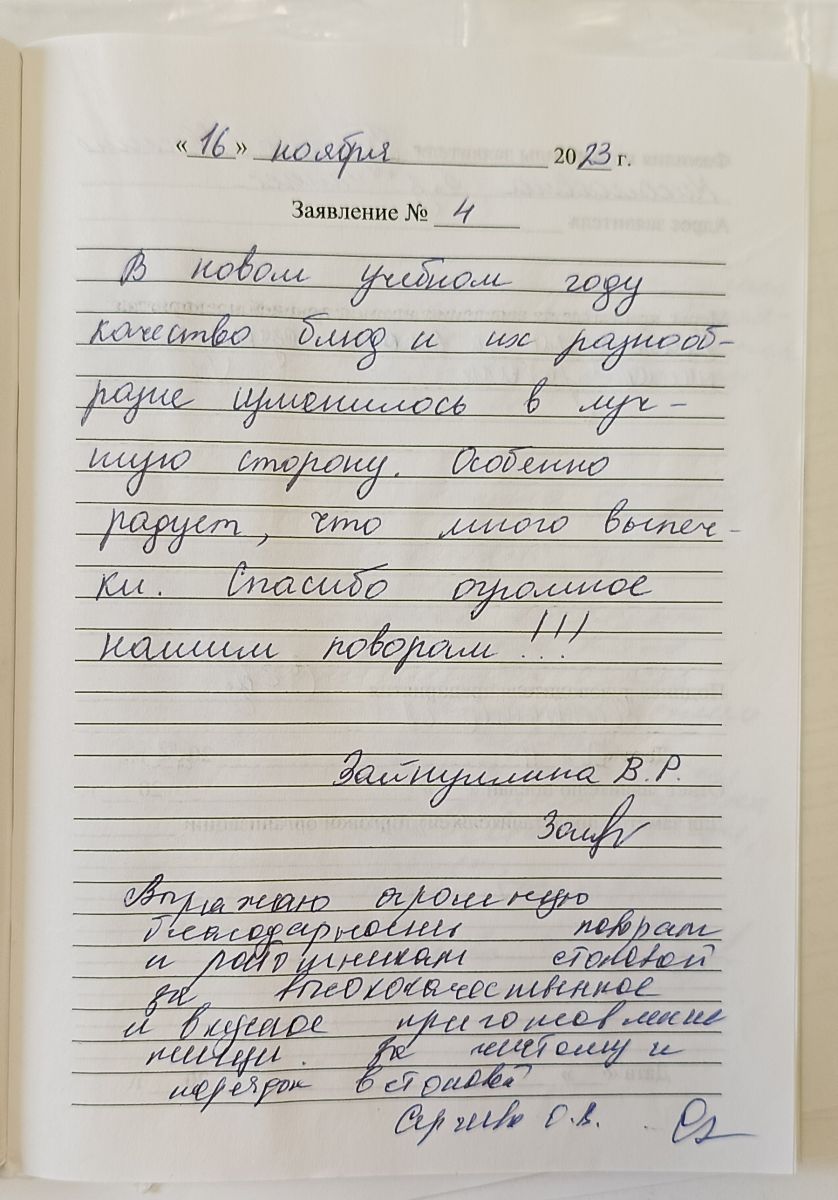 «16» ноября 2023 г.
Заявление № 4
В новом учебном году
качество блюд и их разнооб-
разие изменилось в луч-
шую сторону. Особенно
радует, что много выпеч-
ки. Спасибо огромное
нашим поворам!!!
Зайнуллина В.Р.
Выражаю огромную
благодарность поворам
и работникам столовой
за высококачественное
и вкусное приготовление
пищи. За чистоту и
порядок в столовой
Сергеева О.В.